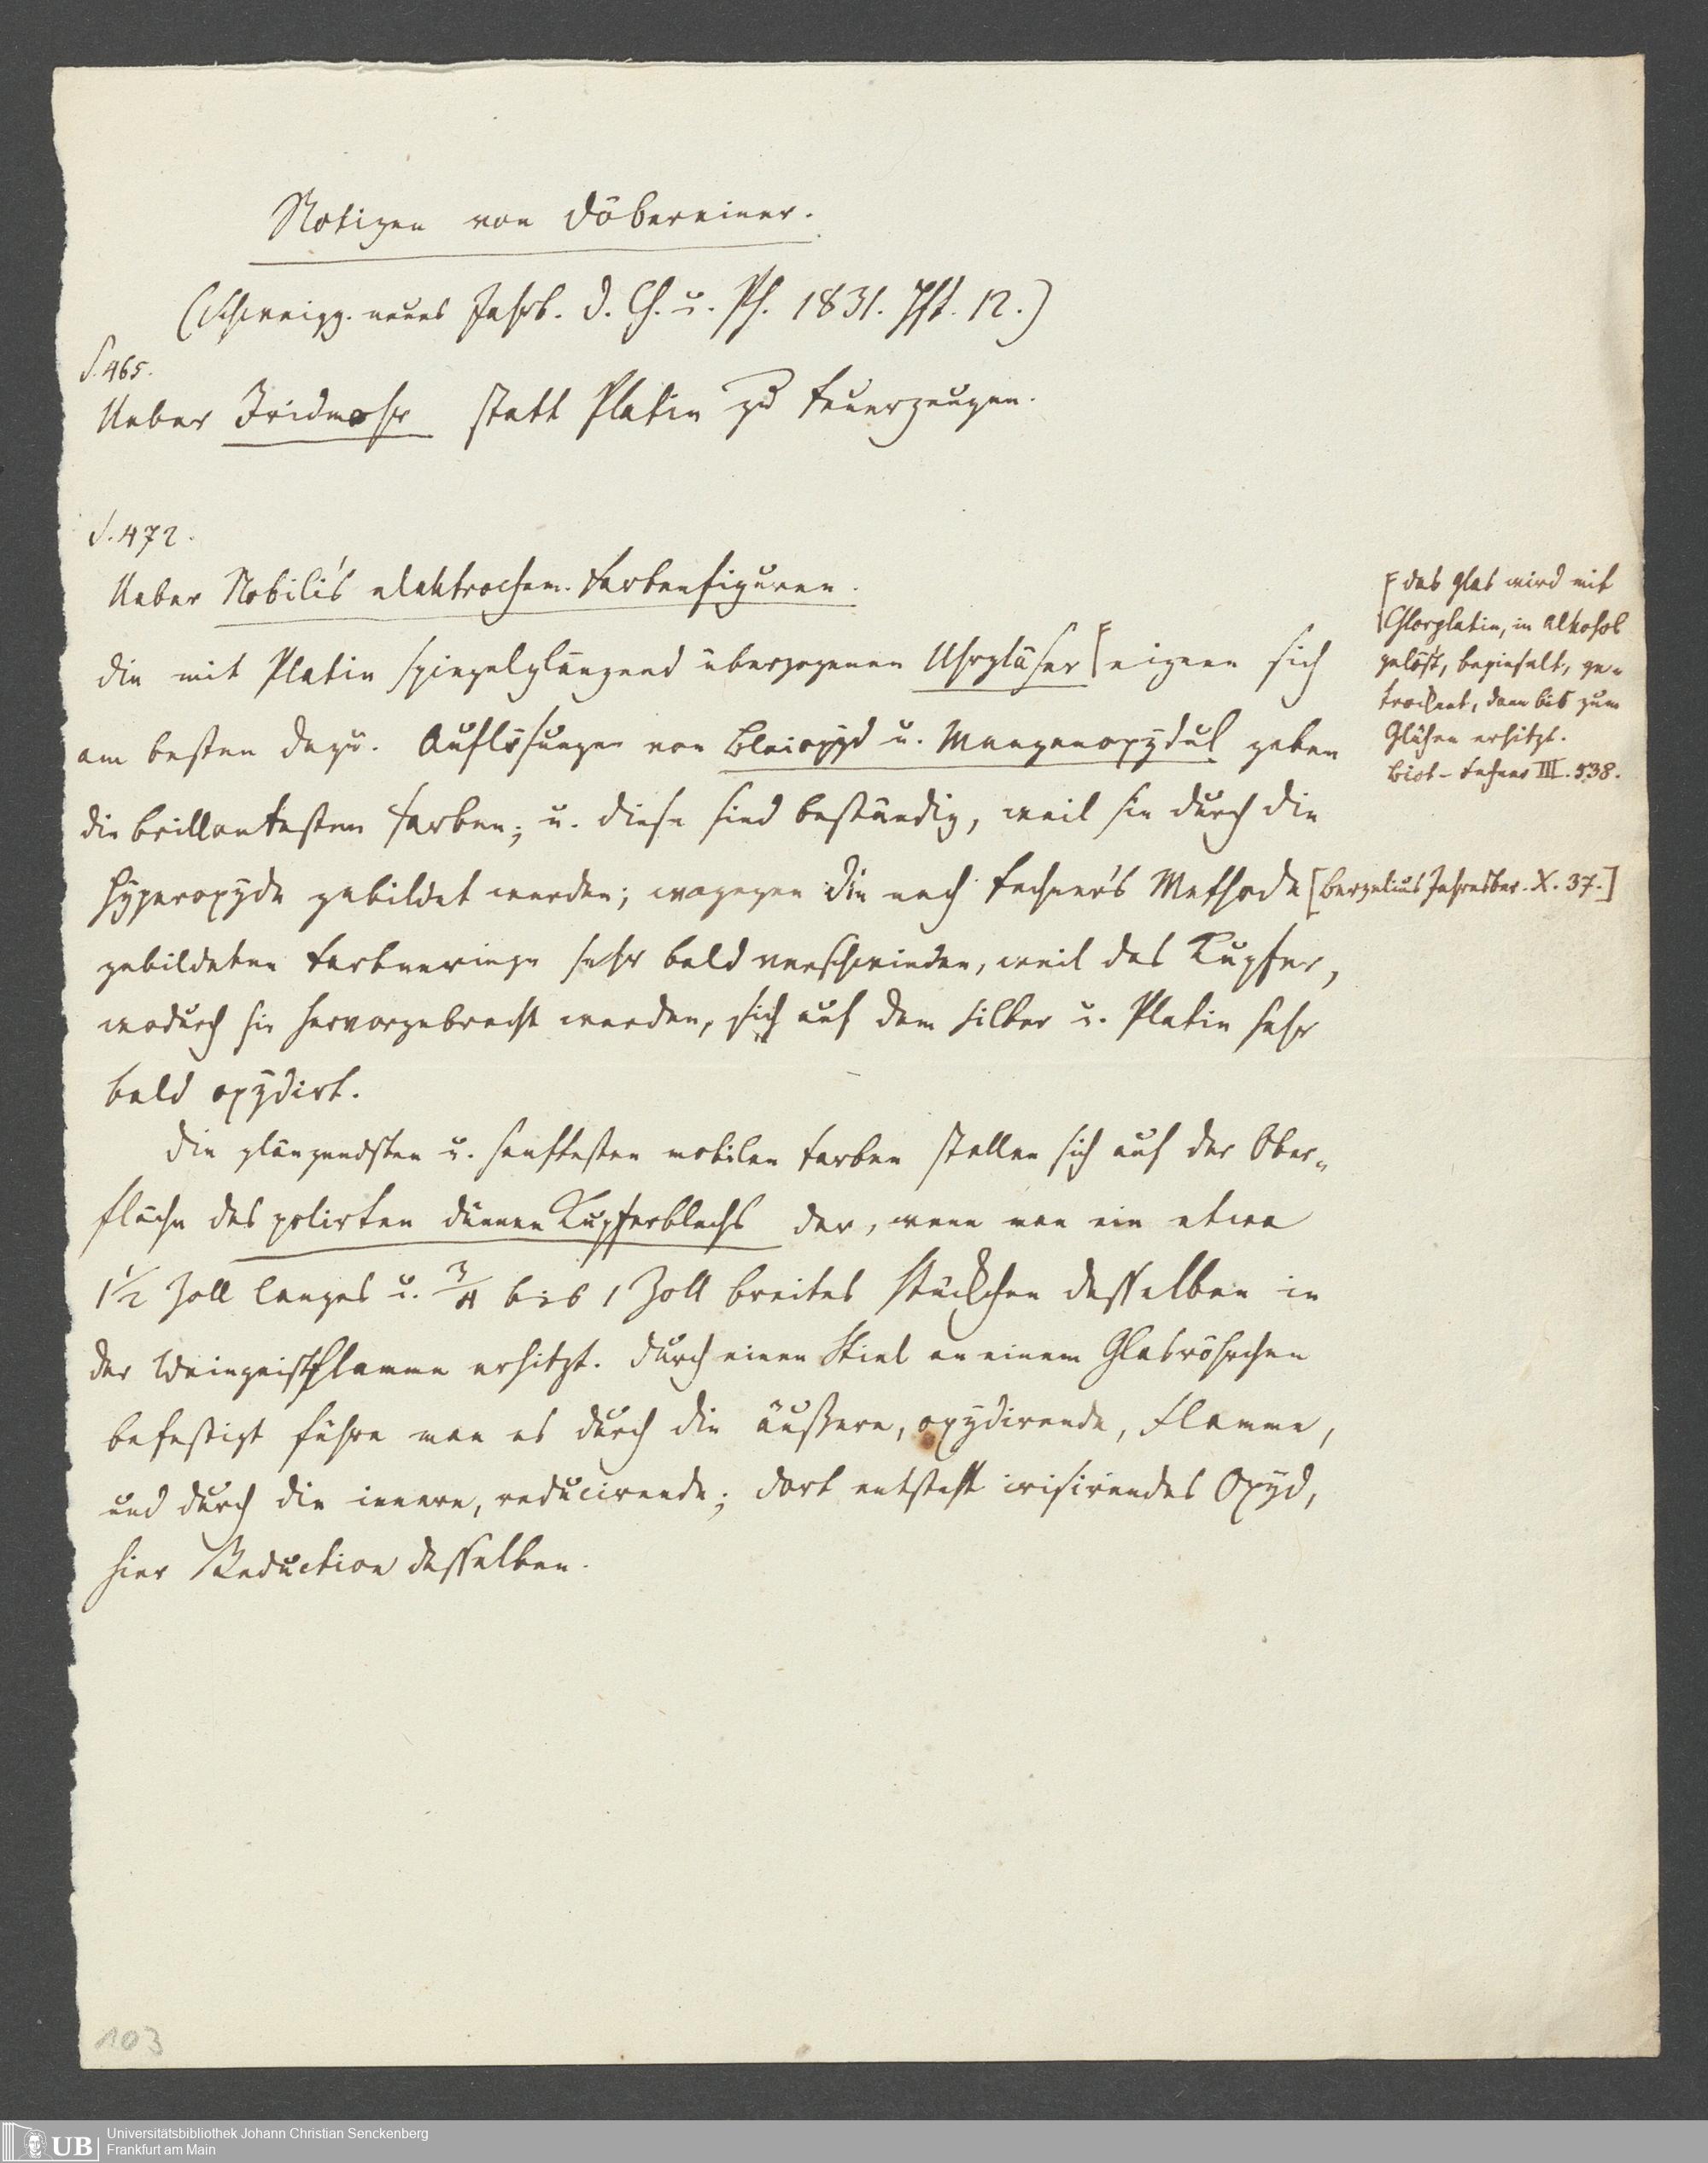 Notizen von Döbereiner.
(Schweigg. neues Jahrb. d. Ch. u. Ph. 1831. Hft. 12.)
S. 465.
Ueber Iridmohr statt Platin zu Feuerzeugen.
S. 472.
Ueber Nobili's elektrochem. Farbenfiguren.
Die mit Platin spiegelglänzend überzogenen Uhrgläser [F eignen sich
am besten dazu. Auflösungen von Bleioxyd u. Manganoxydul geben
die brillantesten Farben; u. diese sind beständig, weil sie durch die
Hyperoxyde gebildet werden; wogegen die nach Fechner's Methode [Berzelius Jahresber. X. 37.]
gebildeten Farbenringe sehr bald verschwinden, weil das Kupfer,
wodurch sie hervorgebracht werden, sich auf dem Silber u. Platin sehr
bald oxydirt.
Die glänzendsten u. sanftesten mobilen Farben stellen sich auf der Ober-
fläche des polirten dünnen Kupferblechs dar, wenn man ein etwa
1 1/2 Zoll langes u. 3/4 bis 1 Zoll breites Stückchen desselben in
der Weingeistflamme erhitzt. Durch einen Stiel an einem Glasröhrchen
befestigt führe man es durch die äußere, oxydirende, Flamme,
und durch die innere, reducirende; dort entsteht irisirendes Oxyd,
hier Reduction desselben.
F das Glas wird mit
Chlorplatin, in Alkohol
gelöst, bepinselt, ge-
trocknet, dann bis zum
Glühen erhitzt.
Biot-Fechner III. 538.
103
UB
Universitätsbibliothek Johann Christian Senckenberg
Frankfurt am Main